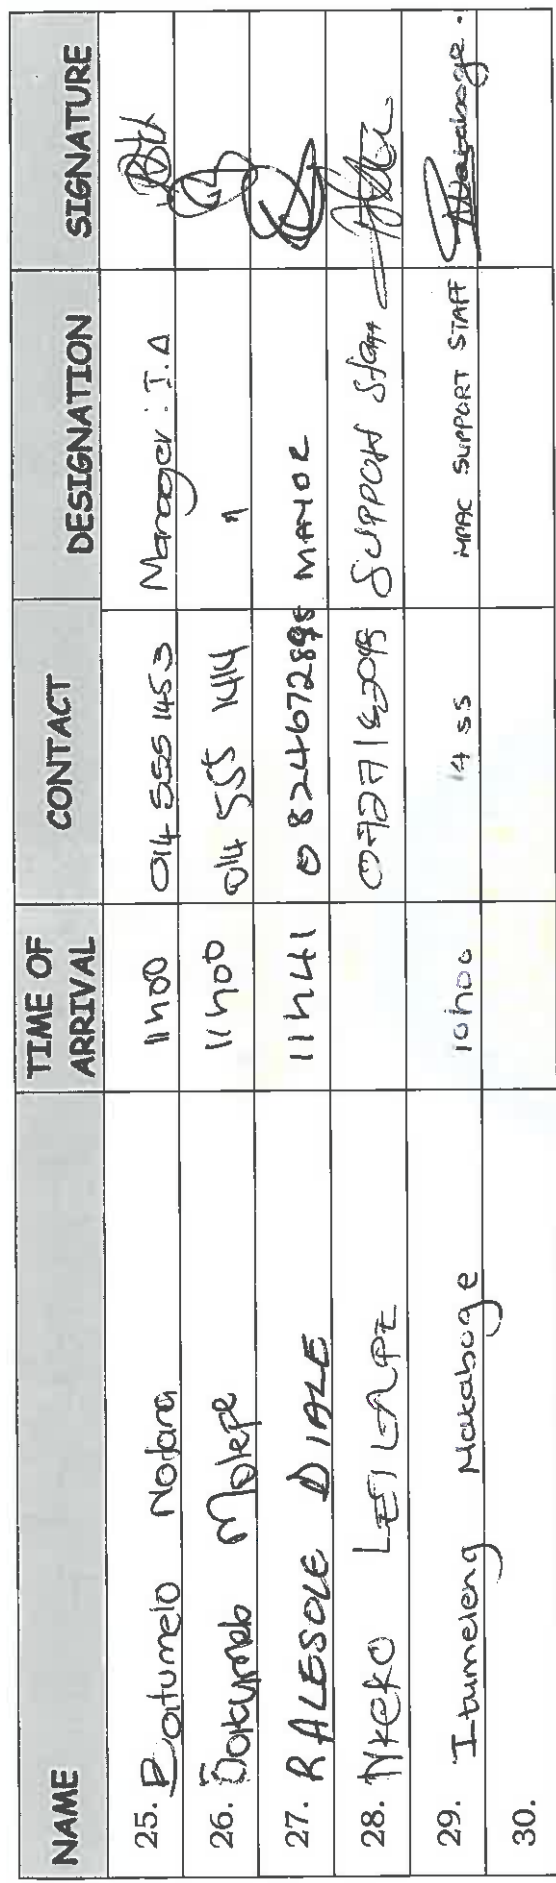 NAME TIME OF ARRIVAL CONTACT DESIGNATION SIGNATURE
25. Boitumelo Notana 11h00 014 555 1453 Manager: I.A
26. Boitumelo Molepe 11h00 014 555 1414 "
27. RALESOLE DIALE 11h41 0824672898 MAYOR
28. LETLAPE Support Staff
29. Itumeleng Makaboge 10h00 1455 MPAC SUPPORT STAFF Makaboge.
30.